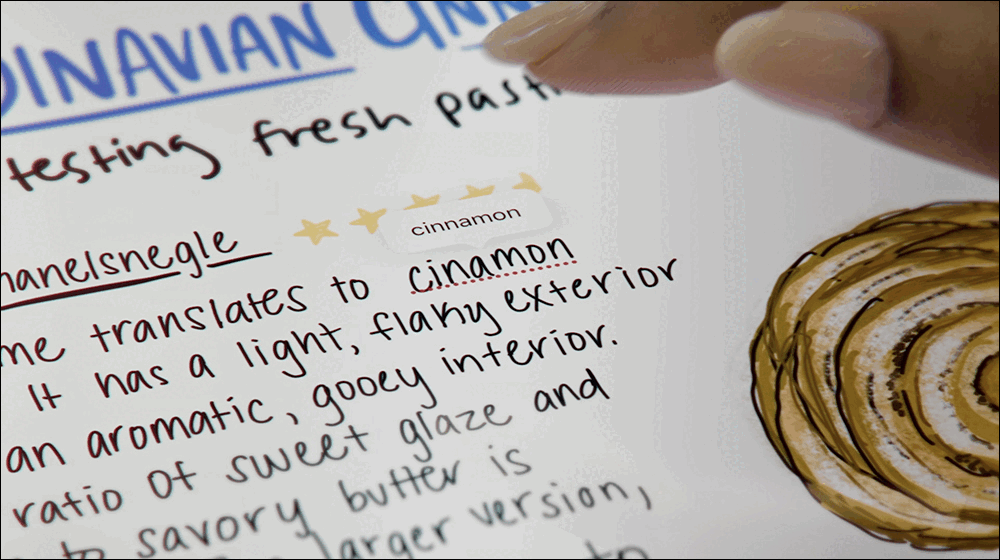 DINAVIAN CINN
testing fresh past
hanelsnegle
cinnamon
me translates to cinamon
It has a light, flaky exterior
an aromatic, gooey interior.
ratio of sweet glaze and
to savory butter is
larger version,
to